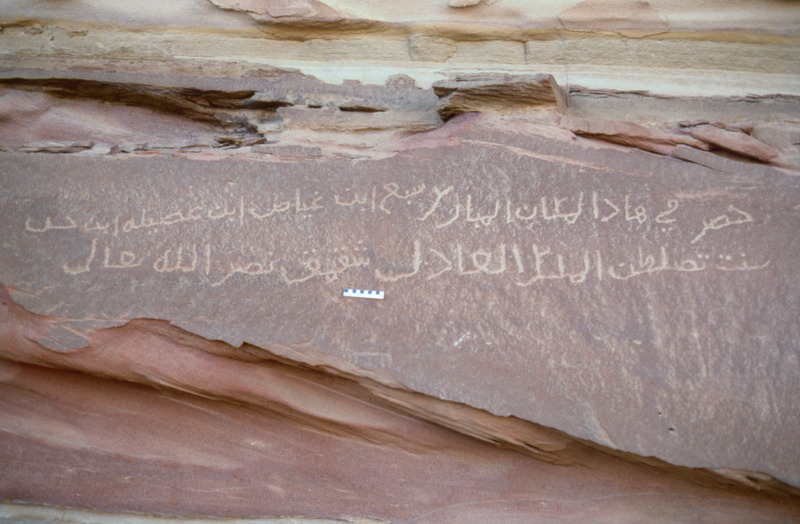 حضر في هاذا المكان المبارك سبع ابن غياض ابن غضيله ابن حسن
سنت تصلطن الملك العادل شقمقق نصر الله تعالى